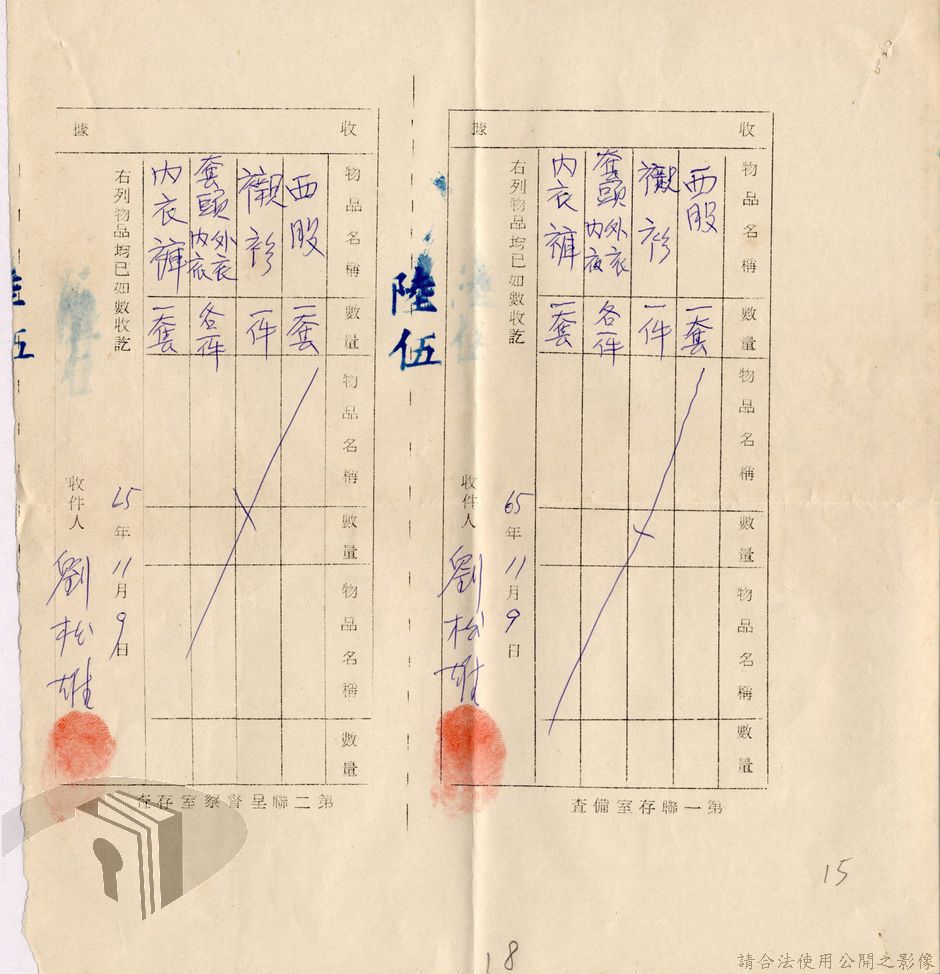 收據
物品名稱
數量
物品名稱
數量
物品名稱
數量
西股
一套
襯衫
一件
套頭內衣外衣
各一件
內衣褲
一套
右列物品均已如數收訖
65年11月9日
收件人
劉松雄
第一聯存室備查
陸伍
收據
物品名稱
數量
物品名稱
數量
物品名稱
數量
西股
一套
襯衫
一件
套頭內衣外衣
各一件
內衣褲
一套
右列物品均已如數收訖
65年11月9日
收件人
劉松雄
第二聯呈督察室存查
伍
15
18
請合法使用公開之影像